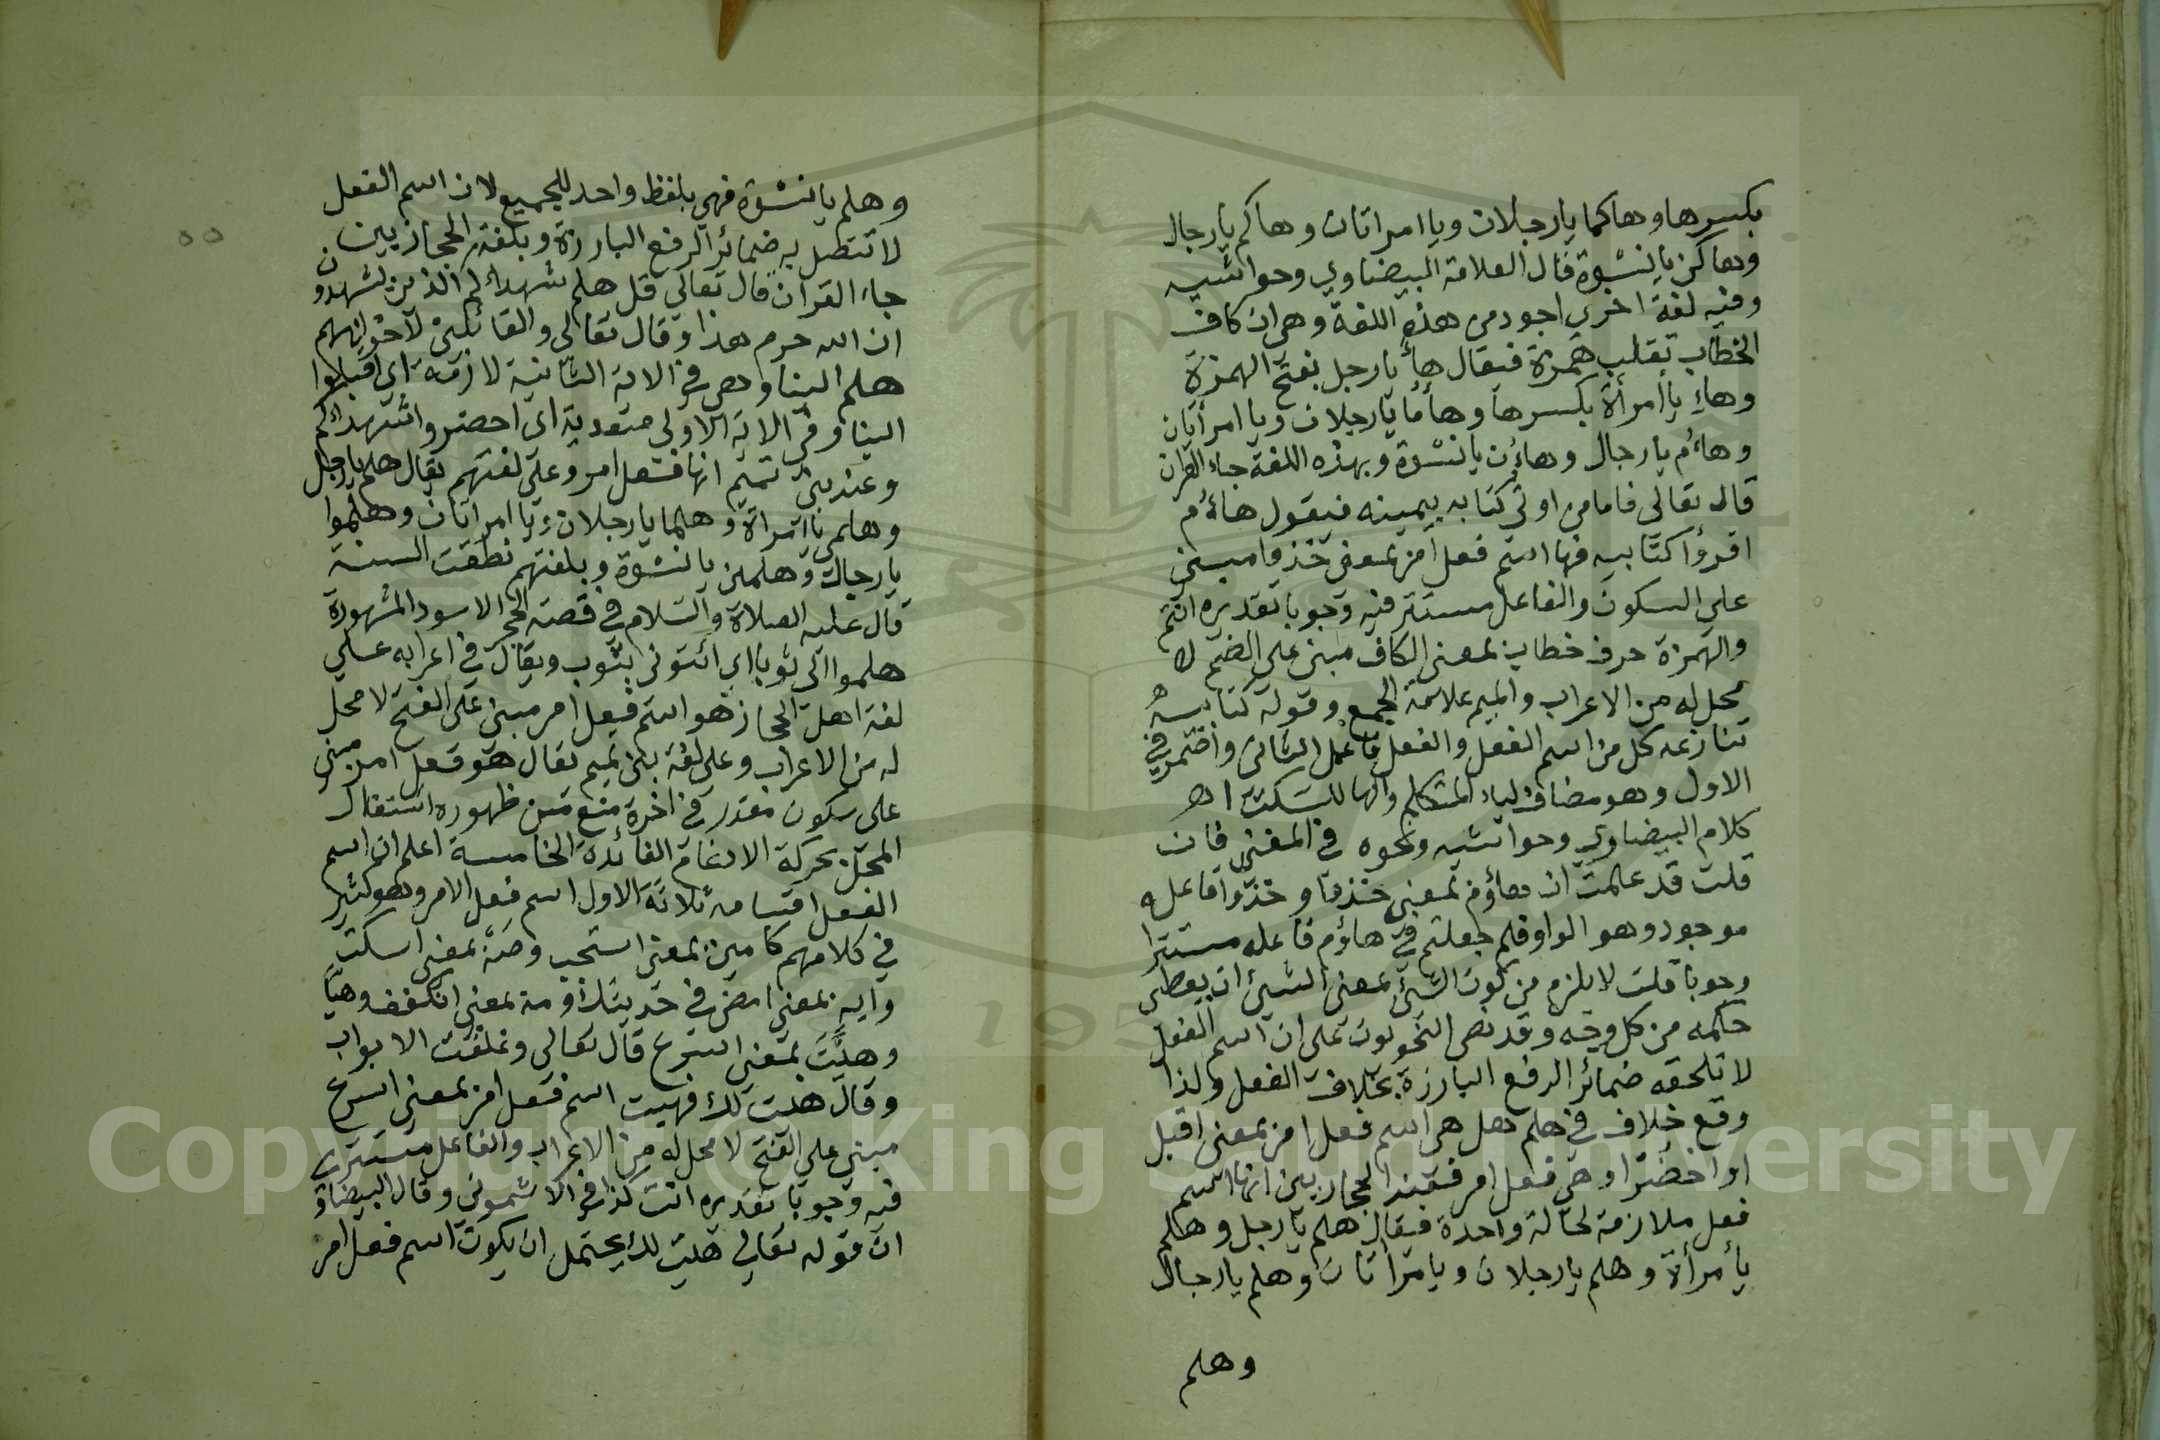 بكسرها وهاكما يا رجلان ويا امراتان وهاكم يا رجال
وهاكن يا نسْوة قال العلامة البيضاوي وحواشيه
وفيه لغة اخري اجود من هذه اللغة وهي ان كاف
الخطاب تقلب همزة فيقال هاءَ يا رجل بفتح الهمزة
وهاءِ يا امرأة بكسرها وهاؤما يا رجلان ويا امرأتان
وهاءُم يا رجال وهاؤن يا نسْوة وبهذه اللغة جاء القران
قال تعالي فاما من اوتي كتابه بيمينه فيقول هاءُم
اقرؤا كتابيه فها اسم فعل امر بمعني خذوا مبني
علي السكون والفاعل مستتر فيه وجوبا تقديره انتم
والهمزة حرف خطاب بمعني الكاف مبني علي الضم لا
محل له من الاعراب والميم علامة الجمع وقوله كتابيه
تنازعه كل من اسم الفعل والفعل فاعمل الثاني واضمر في
الاول وهو مضاف لياء المتكلم والها للسكت اهـ
كلام البيضاوي وحواشيه ونحوه في المغني فان
قلت قد علمت ان هاؤم بمعني خذوا وخذوا فاعله
موجود وهو الواو فلم جعلتم في هاؤم فاعله مستترا
وجوبا قلت لا يلزم من كون الشيء بمعني الشيء ان يعطي
حكمه من كل وجه وقد نص النحويون علي ان اسم الفعل
لا تلحقه ضمائر الرفع البارزة بخلاف الفعل ولذا
وقع خلاف في هلم هل هي اسم فعل امر بمعني اقبل
او احضر او هي فعل امر فعند الحجازيين انها اسم
فعل ملازمة لحالة واحدة فيقال هلم يا رجل وهلم
يا مرأة وهلم يا رجلان ويا مرأتان وهلم يا رجال
وهلم
وهلم يا نسْوة فهي بلفظ واحد للجميع لان اسم الفعل
لا تتصل به ضمائر الرفع البارزة وبلغة الحجازيين
جاء القران قال تعالي قل هلم شهداءكم الذين يشهدون
ان الله حرم هذا وقال تعالي والقائلين لاخوانهم
هلم الينا وهي في الاية الثانية لازمة اي اقبلوا
الينا وفي الاية الاولي متعدية اي احضروا شهداءكم
وعند بني تميم انها فعل امر وعلي لغتهم يقال هلم يا رجل
وهلمي يا امرأة وهلما يا رجلان ويا امرأتان وهلموا
يا رجال وهلممن يا نسْوة وبلغتهم نطقت السنة
قال عليه الصلاة والسلام في قصة الحجر الاسود المشهورة
هلموا الي ثوبا اي ائتوني بثوب ويقال في اعرابه علي
لغة اهل الحجاز هو اسم فعل امر مبني علي الفتح لا محل
له من الاعراب وعلي لغة بني تميم يقال هو فعل امر مبني
علي سكون مقدر في اخره منع من ظهوره اشتغال
المحل بحركة الادغام الفائدة الخامسة اعلم ان اسم
الفعل اقسامه ثلاثة الاول اسم فعل الامر وهو كثير
في كلامهم كامين بمعني استجب وصَهْ بمعني اسكت
وايه بمعني امض في حديثك ومه بمعني انكفف وهيا
وهيْتَ بمعني اسرع قال تعالي وغلقت الابواب
وقالت هيت لك فهيت اسم فعل امر بمعني اسرع
مبني علي الفتح لا محل له من الاعراب والفاعل مستتر
فيه وجوبا تقديره انت كذا في الاشموني وقال البيضاوي
ان قوله تعالي هيت لك يحتمل ان يكون اسم فعل امر
Copyright © King Saud University
1957